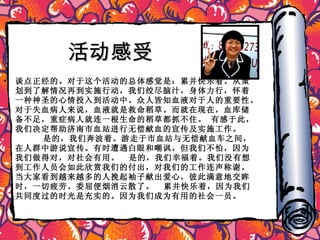 活动感受
谈点正经的。对于这个活动的总体感觉是：累并快乐着。从策
划到了解情况再到实施行动，我们绞尽脑汁，身体力行，怀着
一种神圣的心情投入到活动中。众人皆知血液对于人的重要性。
对于失血病人来说，血液就是救命稻草。而就在现在，血库储
备不足，重症病人就连一根生命的稻草都抓不住。 有感于此，
我们决定帮助济南市血站进行无偿献血的宣传及实施工作。
是的，我们奔波着。游走于市血站与无偿献血车之间，
在人群中游说宣传。有时遭遇白眼和嘲讽，但我们不怕，因为
我们做得对，对社会有用。 是的，我们幸福着。我们没有想
到工作人员会如此欣赏我们的付出，对我们的工作连声称谢。
当大家看到越来越多的人挽起袖子献出爱心，彼此满意地交眸
时，一切疲劳、委屈便烟消云散了。 累并快乐着，因为我们
共同度过的时光是充实的。因为我们成为有用的社会一员。